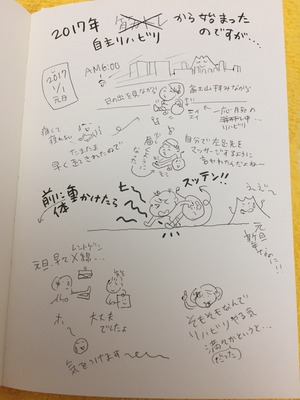 2017年 から始まった
自主リハビリ のですが…
2017
1/1
元日
AM6:00
日の出を見ながら
富士山拝みながら
一応月初の
リハビリ
痛くて
たまたま
早く起きてきたので
自分で左足先を
マッサージするように
言われてたんだよねー
前に体重かけたら
ズッテン!!
ええ〜
元旦早々
レントゲン
X線…
ホ〜
大丈夫
でしたよ
気をつけます〜
そもそもなんで
リハビリやる気
満々かというと…
(だった)